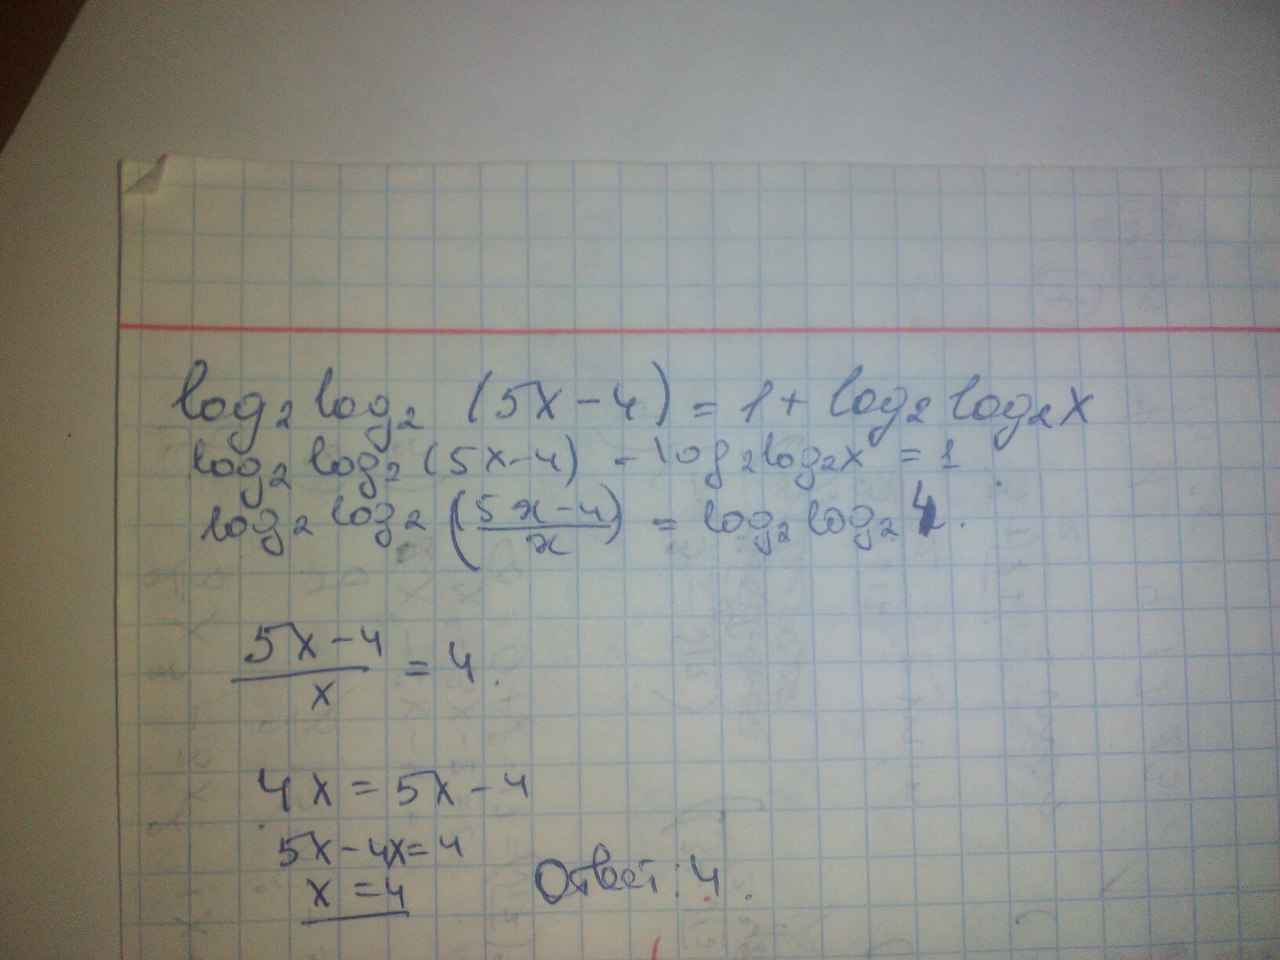 log₂ log₂ (5x - 4) = 1 + log₂ log₂ x
log₂ log₂ (5x - 4) - log₂ log₂ x = 1
log₂ log₂ ((5x - 4)/x) = log₂ log₂ 4.
(5x - 4)/x = 4.
4x = 5x - 4
5x - 4x = 4
x = 4
Ответ: 4.